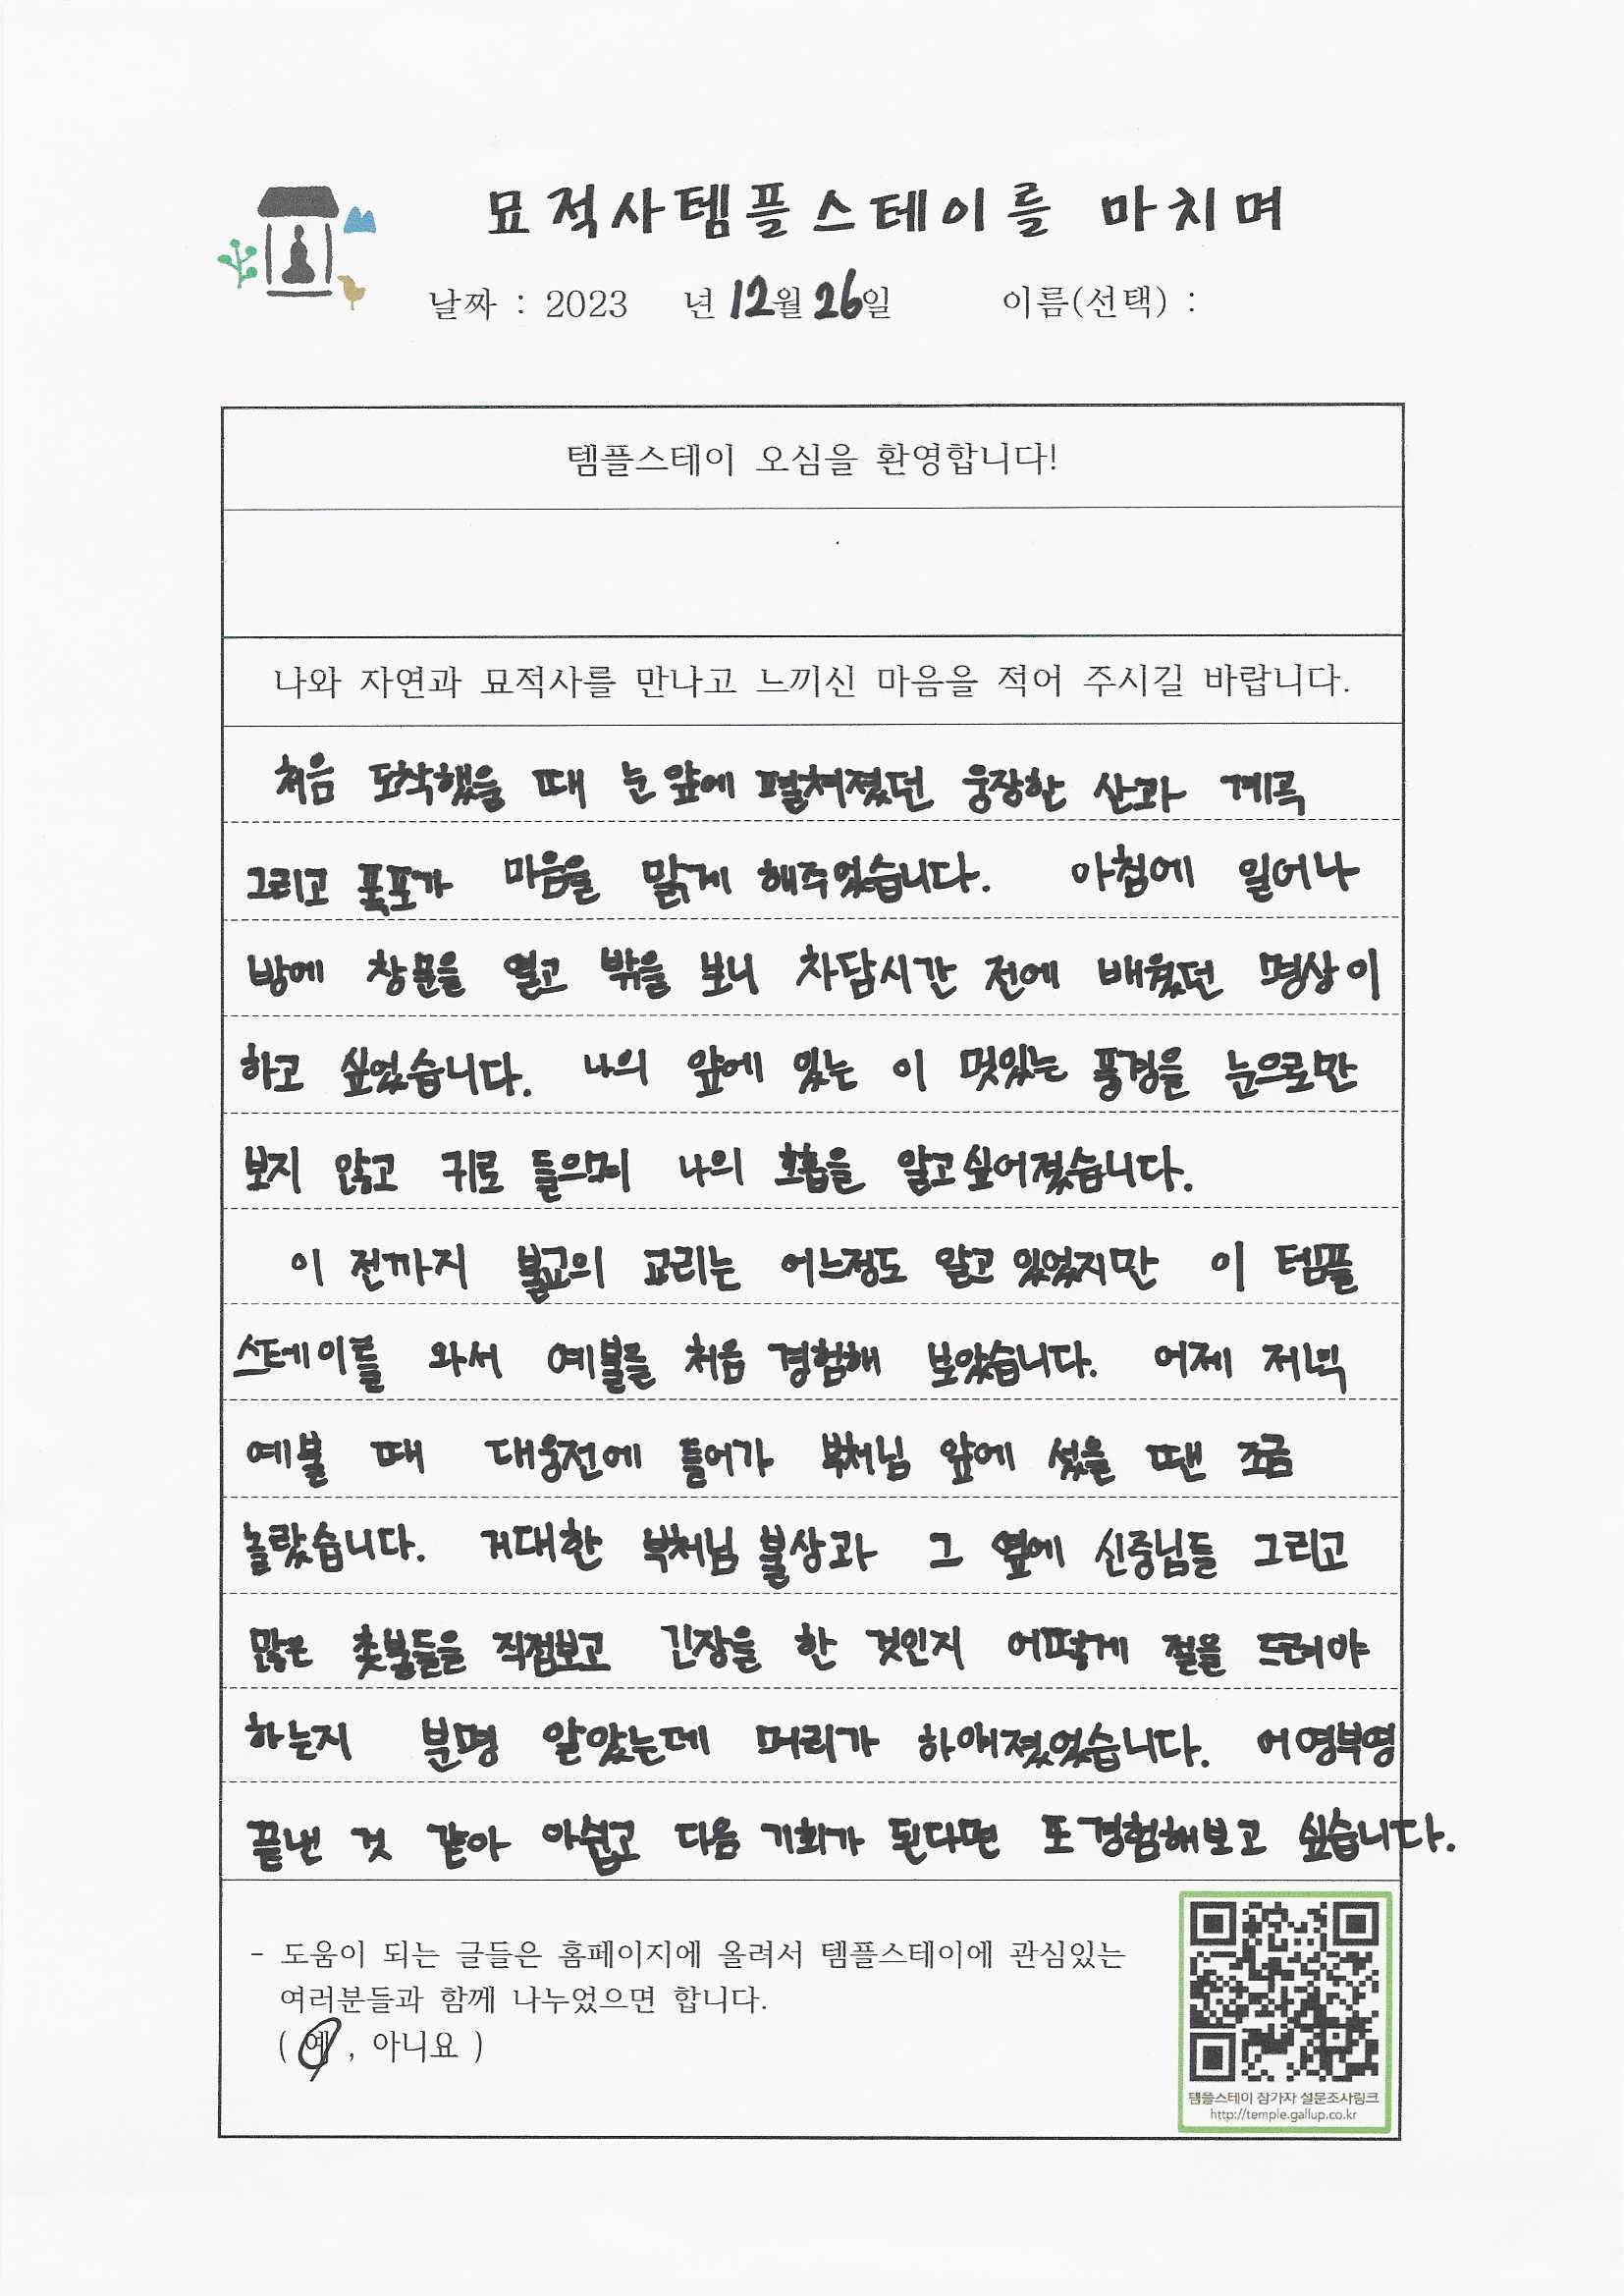 묘적사템플스테이를 마치며
날짜 : 2023 년 12월 26일 이름(선택) :
템플스테이 오심을 환영합니다!
나와 자연과 묘적사를 만나고 느끼신 마음을 적어 주시길 바랍니다.
처음 도착했을 때 눈 앞에 펼쳐졌던 웅장한 산과 계곡
그리고 폭포가 마음을 맑게 해주었습니다. 아침에 일어나
방에 창문을 열고 밖을 보니 차담시간 전에 배웠던 명상이
하고 싶었습니다. 나의 앞에 있는 이 멋있는 풍경을 눈으로만
보지 않고 귀로 들으며 나의 호흡을 알고싶어졌습니다.
이 전까지 불교의 교리는 어느정도 알고 있었지만 이 템플
스테이를 와서 예불을 처음 경험해 보았습니다. 어제 저녁
예불 때 대웅전에 들어가 부처님 앞에 섰을 땐 조금
놀랐습니다. 거대한 부처님 불상과 그 옆에 신중님들 그리고
많은 촛불들을 직접보고 긴장을 한 것인지 어떻게 절을 드려야
하는지 분명 알았는데 머리가 하얘졌었습니다. 어영부영
끝낸 것 같아 아쉽고 다음 기회가 된다면 또 경험해보고 싶습니다.
- 도움이 되는 글들은 홈페이지에 올려서 템플스테이에 관심있는
여러분들과 함께 나누었으면 합니다.
( 예 , 아니요 )
템플스테이 참가자 설문조사링크
http://temple.gallup.co.kr